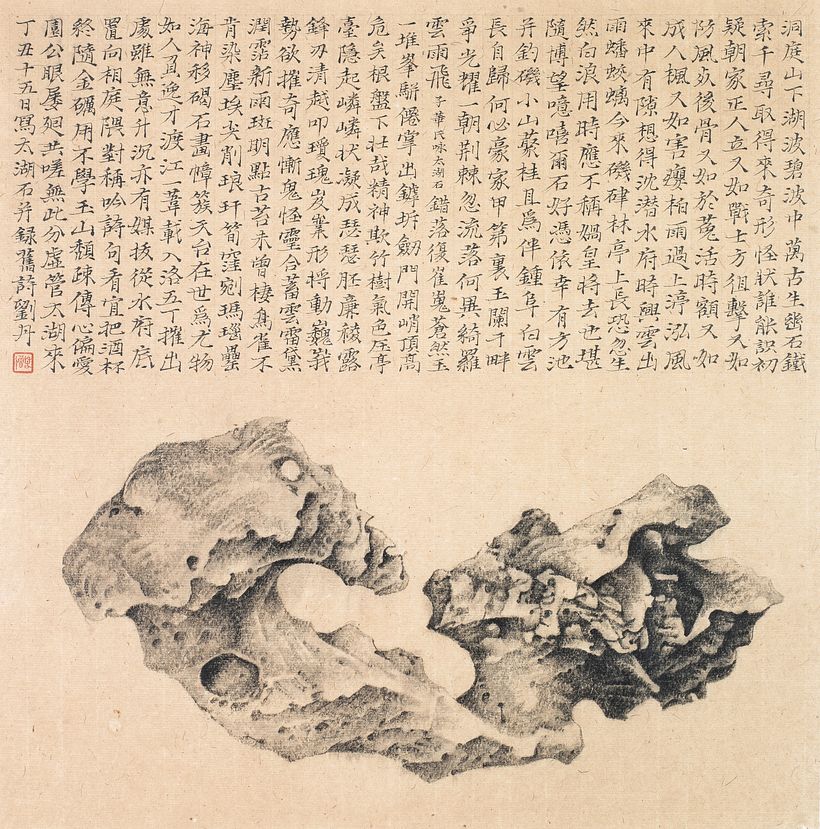 洞庭山下湖波碧波中萬古生幽石鐵
索千尋取得來奇形怪狀誰能識初
疑朝家正人立又如戰士方狙擊又如
防風死後骨又如於菟活時額又如
成人楓又如害癭柏雨過上渟泓風
來中有隙想得沈潛水府時興雲出
雨蟠蛟螭今來磈硉林亭上長恐忽生
然白浪用時應不稱媧皇將去也堪
隨博望噫嘻爾石好憑依幸有方池
并釣磯小山叢桂且為伴鍾阜白雲
長自歸何必豪家甲第裏玉闌干畔
爭光耀一朝荊棘忽流落何異綺羅
雲雨飛 子華氏咏太湖石 錯落復崔嵬蒼然玉
一堆峯駢僊掌出罅坼劍門開峭頂高
危矣根盤下壯哉精神欺竹樹氣色壓亭
臺隱起嶙嶙狀凝成瑟瑟胚廉稜露
鋒刃清越叩瓊瑰岌嶪形將動巍峩
勢欲摧奇應慚鬼怪靈合蓄雲雷黛
潤霑新雨斑明點古苔未曾棲鳥雀不
肯染塵埃尖削琅玕筍窪剜瑪瑙罍
海神移碣石畫幛簇天台在世為尤物
如人負逸才渡江一葦載入洛五丁推出
處雖無意升沉亦有媒拔從水府底
置向相庭隈對稱吟詩句看宜把酒杯
終隨金礪用不學玉山頹疎傅心偏愛
園公眼屢迴共嗟無此分虛管太湖來
丁丑十五日寫太湖石并錄舊詩劉丹